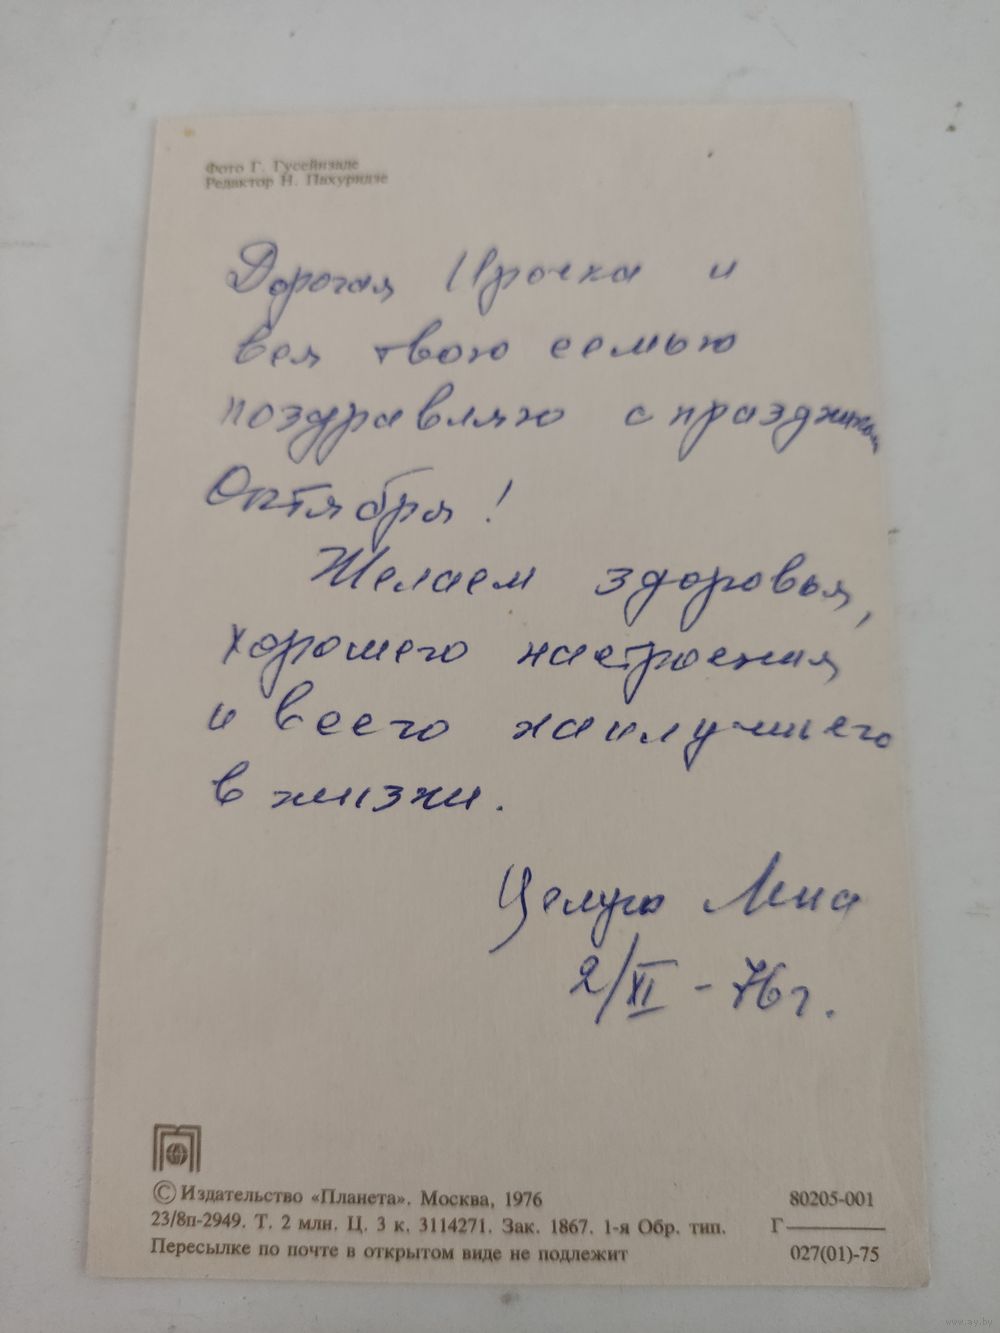 Фото Г. Гусейнзаде
Редактор Н. Пахуридзе
Дорогая Ирочка и
вся твою семью
поздравляю с праздником
Октября!
Желаем здоровья,
хорошего настроения
и всего наилучшего
в жизни.
Целую
2/XI - 76 г.
© Издательство «Планета». Москва, 1976
80205-001
23/8п-2949. Т. 2 млн. Ц. 3 к. 3114271. Зак. 1867. 1-я Обр. тип.
Г
Пересылке по почте в открытом виде не подлежит
027(01)-75
www.ay.by